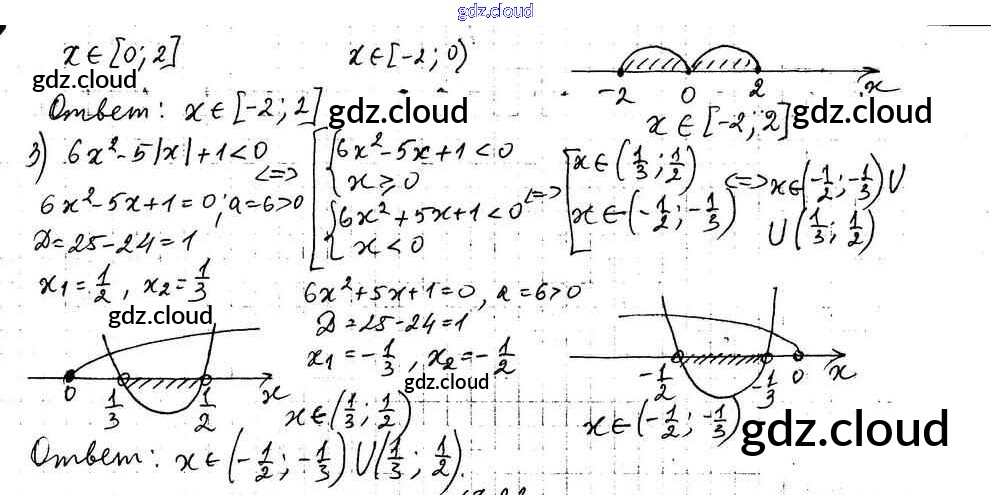 gdz.cloud
x ∈ [0; 2]
x ∈ [-2; 0)
gdz.cloud
-2 0 2 x
Ответ: x ∈ [-2; 2]
gdz.cloud
gdz.cloud
x ∈ [-2; 2]
3) 6x² - 5|x| + 1 < 0 <=> [ { 6x² - 5x + 1 < 0
x ≥ 0
{ 6x² + 5x + 1 < 0
x < 0
<=> [ x ∈ (1/3; 1/2)
x ∈ (-1/2; -1/3)
<=> x ∈ (-1/2; -1/3) ∪
∪ (1/3; 1/2)
6x² - 5x + 1 = 0; a = 6 > 0
D = 25 - 24 = 1
x₁ = 1/2, x₂ = 1/3
gdz.cloud
0 1/3 1/2 x
6x² + 5x + 1 = 0, a = 6 > 0
D = 25 - 24 = 1
x₁ = -1/3, x₂ = -1/2
gdz.cloud
x ∈ (1/3; 1/2)
-1/2 -1/3 0 x
x ∈ (-1/2; -1/3)
gdz.cloud
Ответ: x ∈ (-1/2; -1/3) ∪ (1/3; 1/2).